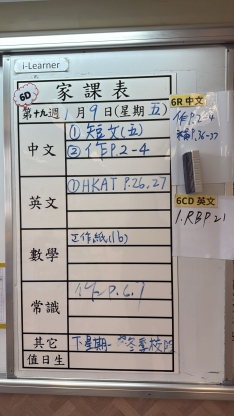 i-Learner
6D
家課表
第十九週 1月9日(星期五)
中文
① 短文(五)
② 作P.2-4
英文
① HKAT P.26,27
數學
工作紙(1b)
常識
作P.6,7
其它
下星期一
冬季校服
值日生
6R 中文
作P.2-4
P.36-37
6CD 英文
1. RBP21